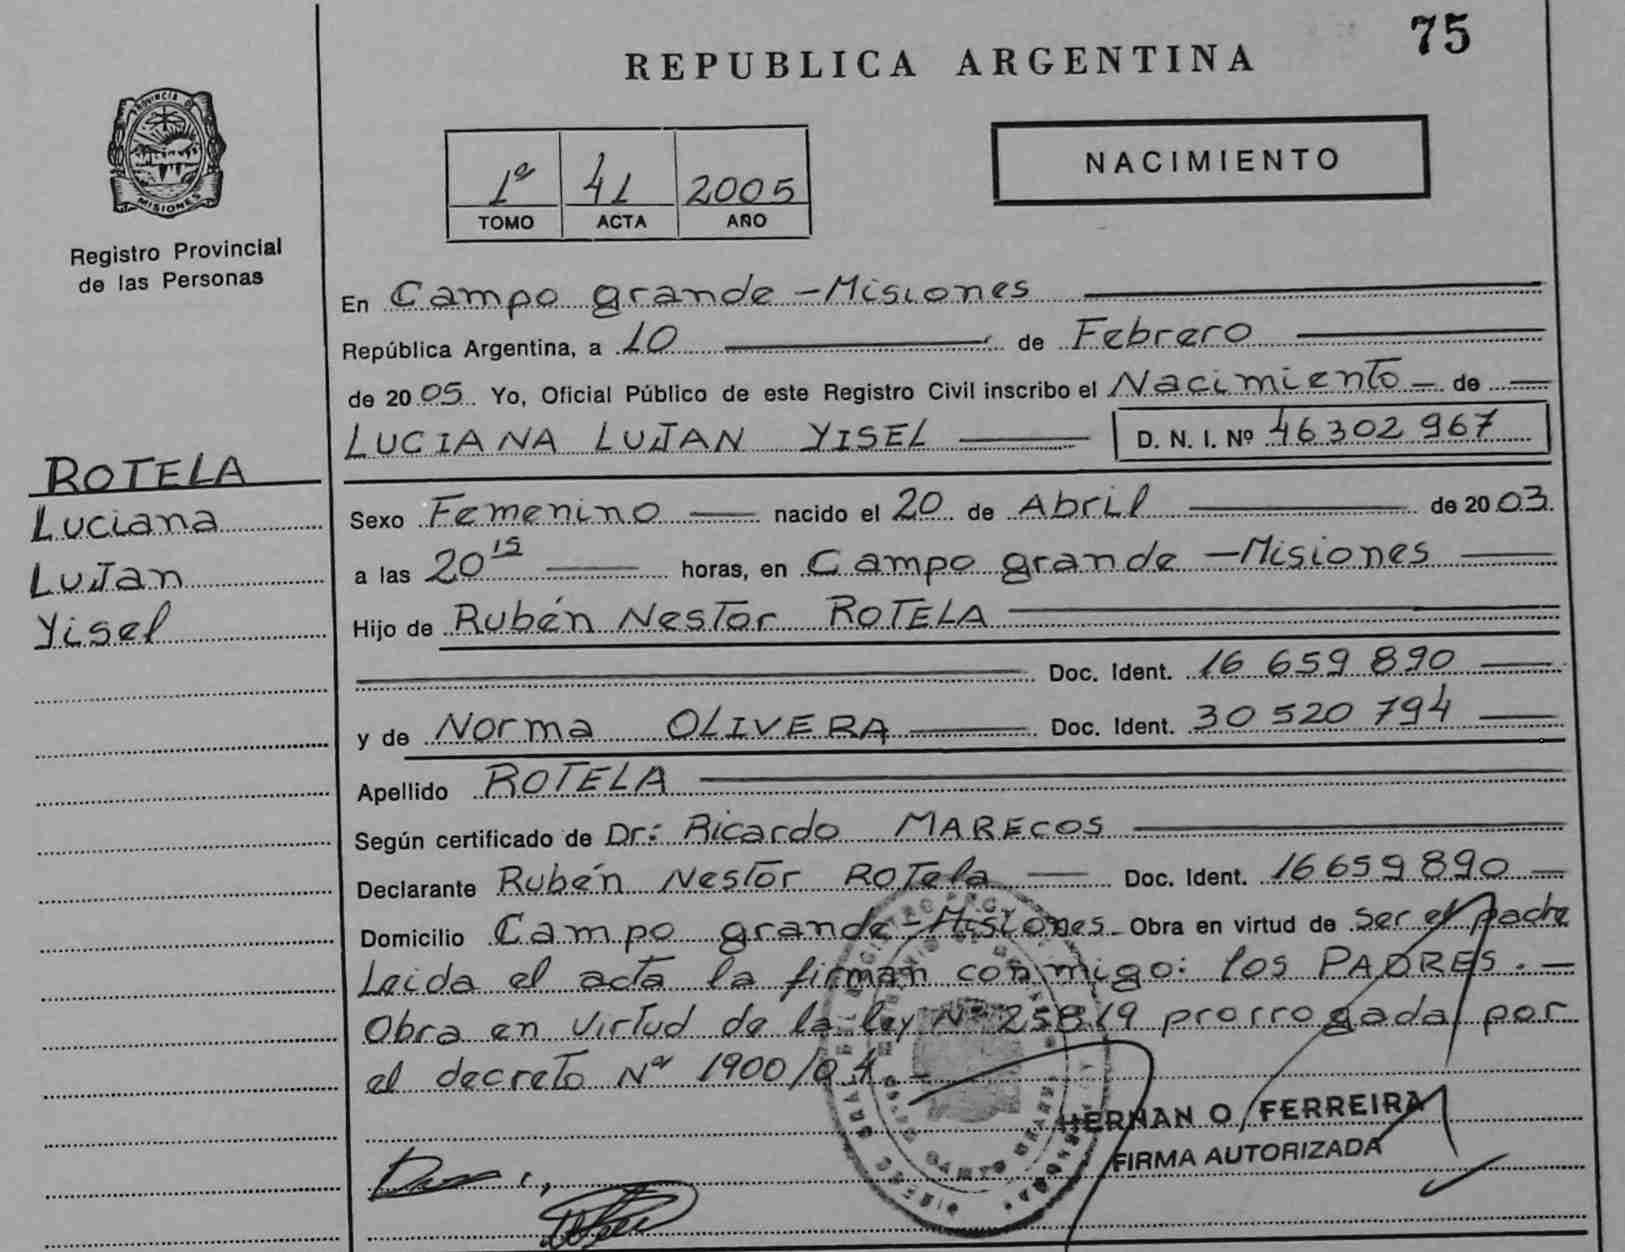 75
REPUBLICA ARGENTINA
PROVINCIA DE
MISIONES
Registro Provincial
de las Personas
1º 41 2005
TOMO ACTA AÑO
NACIMIENTO
En Campo grande - Misiones
República Argentina, a 10 de Febrero
de 2005. Yo, Oficial Público de este Registro Civil inscribo el Nacimiento - de
LUCIANA LUJAN YISEL D. N. I. Nº 46302967
ROTELA
Luciana
LuJan
Yisel
Sexo Femenino nacido el 20 de Abril de 2003.
a las 20 15 horas, en Campo grande - Misiones
Hijo de Rubén Nestor ROTELA
Doc. Ident. 16 659 890
y de Norma OLIVERA Doc. Ident. 30 520 794
Apellido ROTELA
Según certificado de Dr: Ricardo MARECOS
Declarante Rubén Nestor ROTela Doc. Ident. 16659890
Domicilio Campo grande - Misiones. Obra en virtud de ser el padre
Leida el acta la firman conmigo: los PADRES. -
Obra en virtud de la ley Nº 25819 prorrogada por
el decreto Nº 1900/04 -
HERNAN O. FERREIRA
FIRMA AUTORIZADA